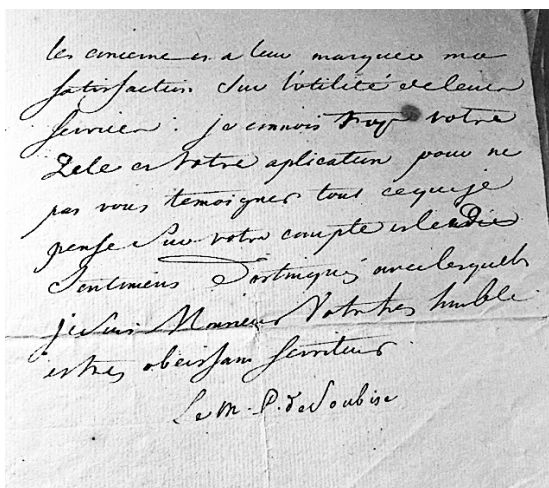 les concerne et a leur marquer ma
satisfaction sur l'utilité de leurs
services. je connois trop votre
Zele et votre aplication pour ne
pas vous temoigner tout ce que je
pense sur votre compte et les
Sentimens Distingués avec lesquels
je suis Monsieur Votre tres humble
et tres obeissant serviteur.
Le M. P. de Soubise